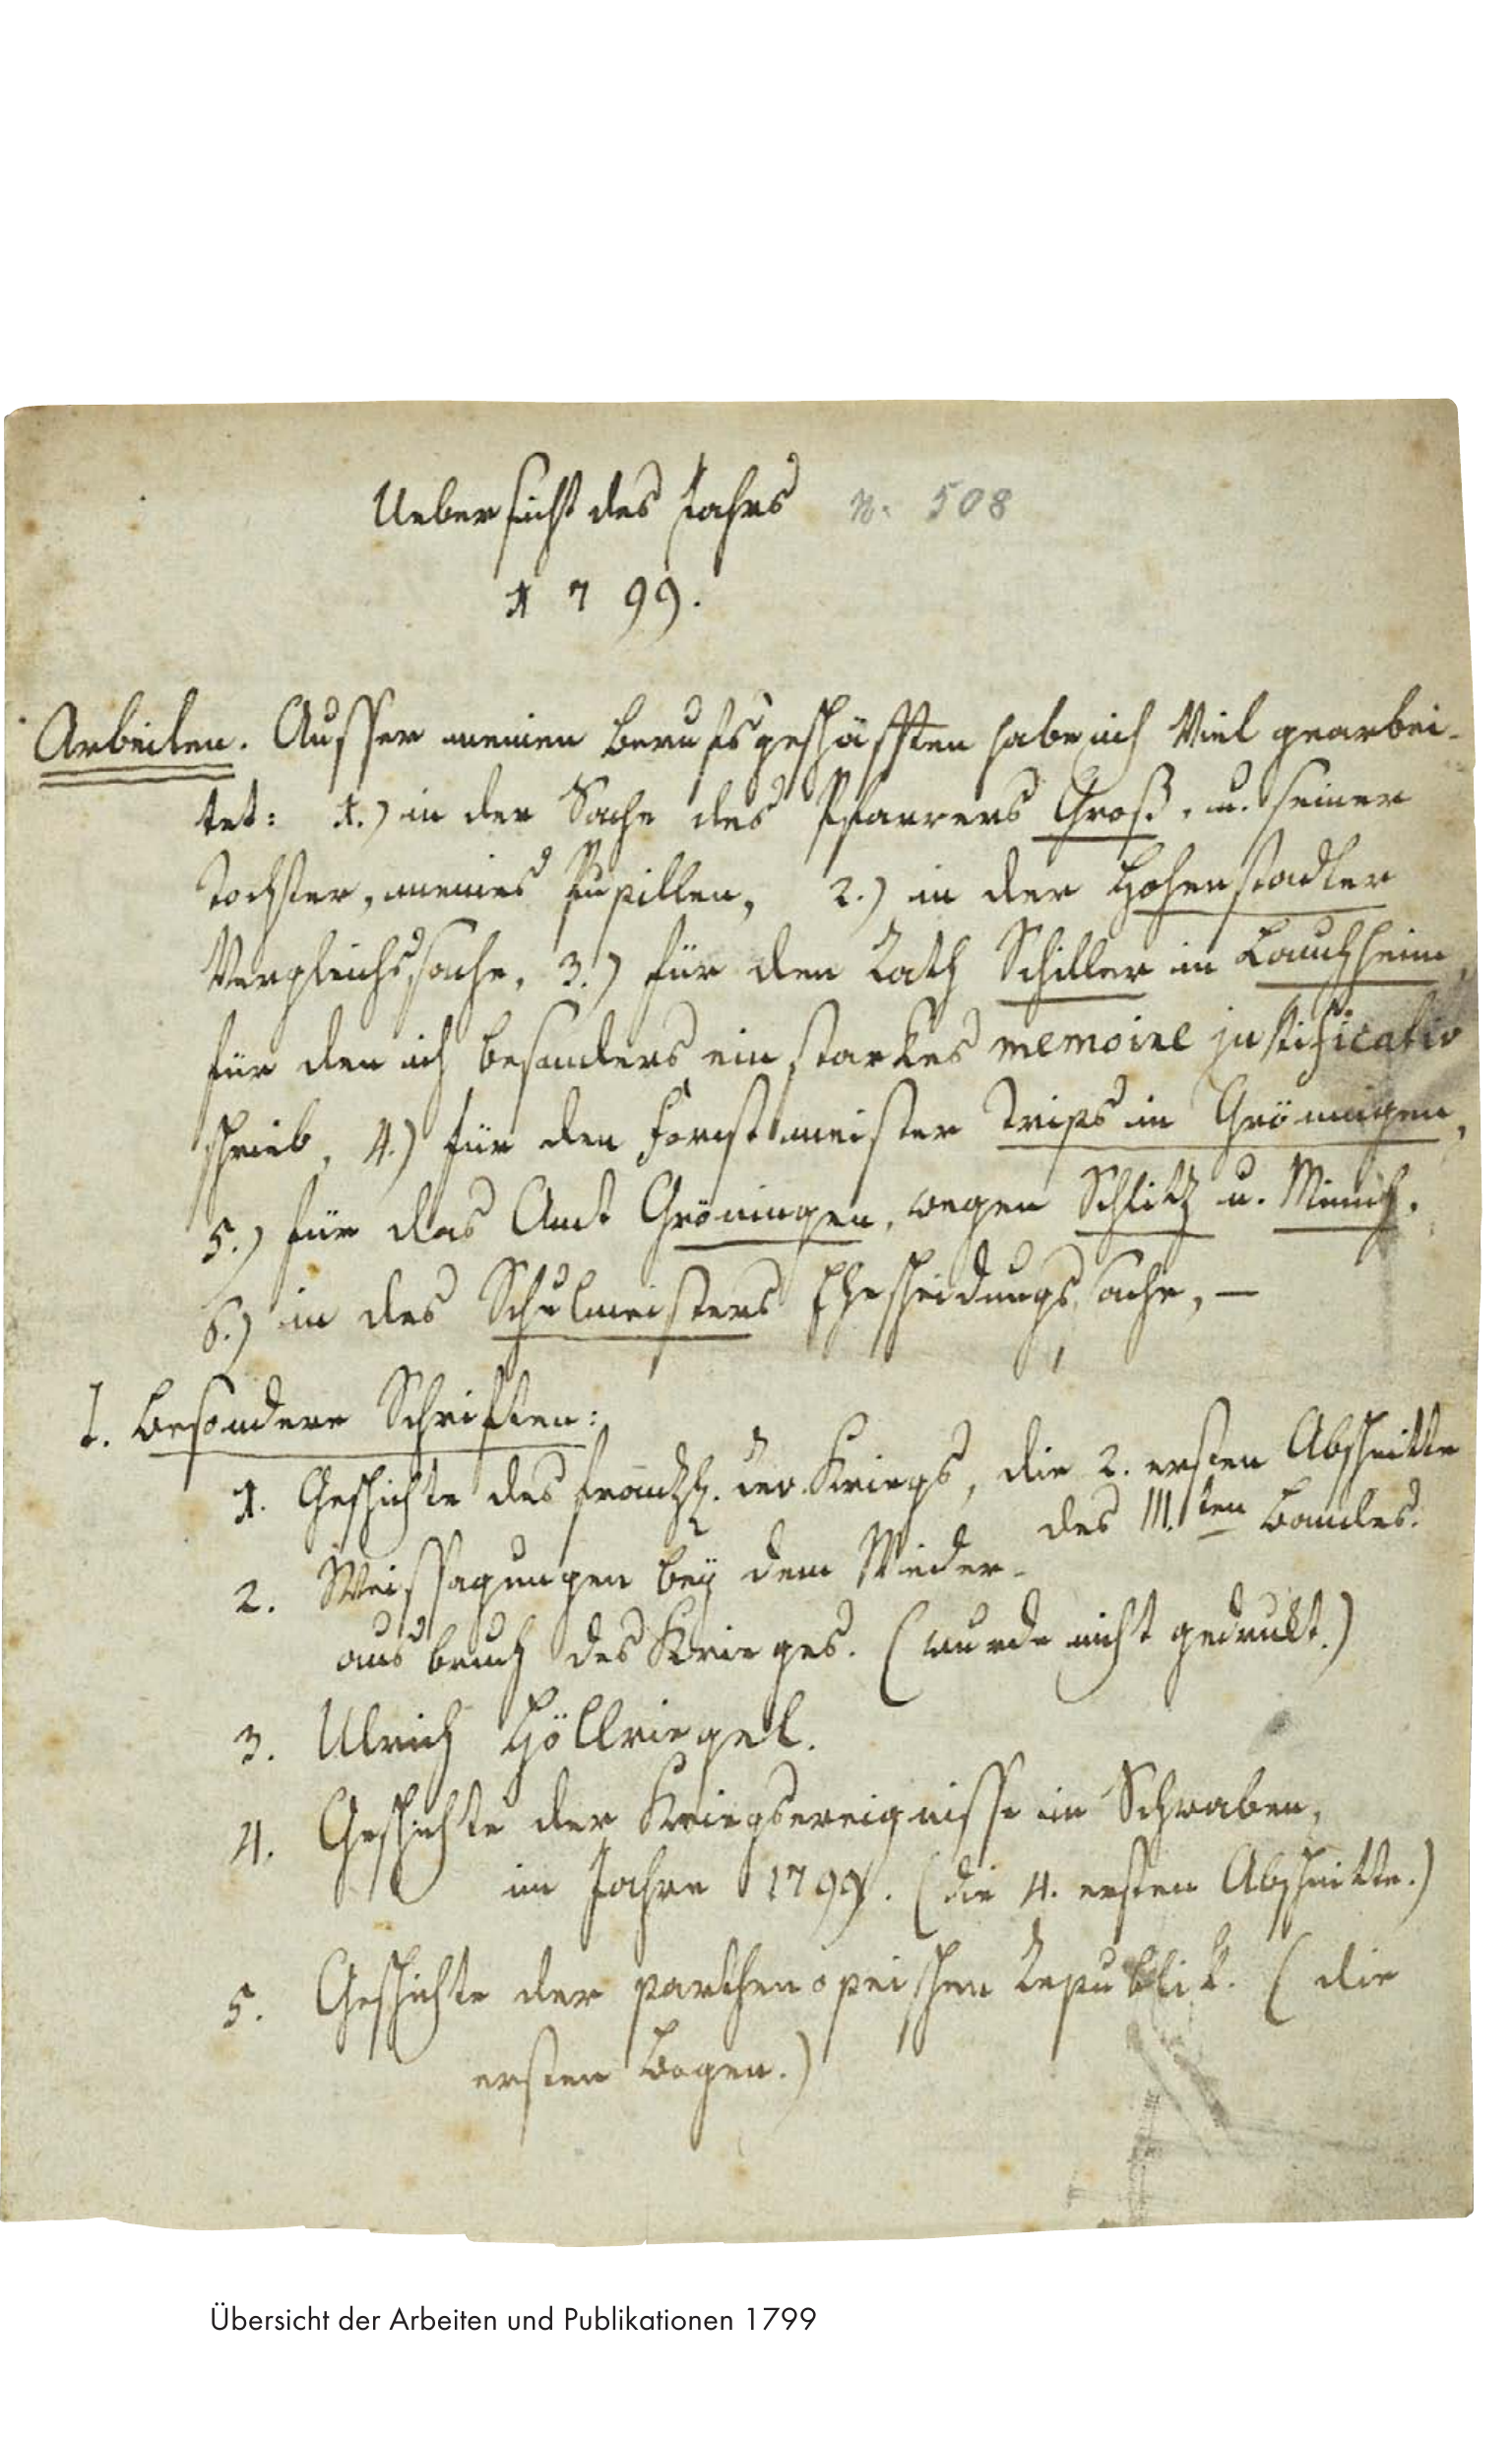 Uebersicht des Jahrs N. 508
1799.
Arbeiten. Ausser meinen Berufsgeschäfften habe ich Viel gearbei-
tet: 1.) in der Sache des Pfarrers Groß, u. seiner
Tochter, meines Pupillen, 2.) in der Hohenstadler
Vergleichssache, 3.) für den Rath Schiller in Lauchheim,
für den ich besonders ein starkes memoire justificativ
schrieb, 4.) für den Forstmeister Trips in Gröningen,
5.) für das Amt Gröningen, wegen Schlitz u. Minich.
6.) in des Schulmeisters Ehescheidungssache, —
I. Besondere Schriften:
1. Geschichte des Kriegs, die 2. ersten Abschnitte
des III.ten Bandes.
2. Weissagungen bey dem Wieder-
ausbruch des Krieges. (wurde nicht gedrukt.)
3. Ulrich Höllriegel.
4. Geschichte der Kriegsereignisse in Schwaben,
im Jahre 1799. (die 4. ersten Abschnitte.)
5. Geschichte der parthenopeischen Republik. (die
ersten Bogen.)
Übersicht der Arbeiten und Publikationen 1799